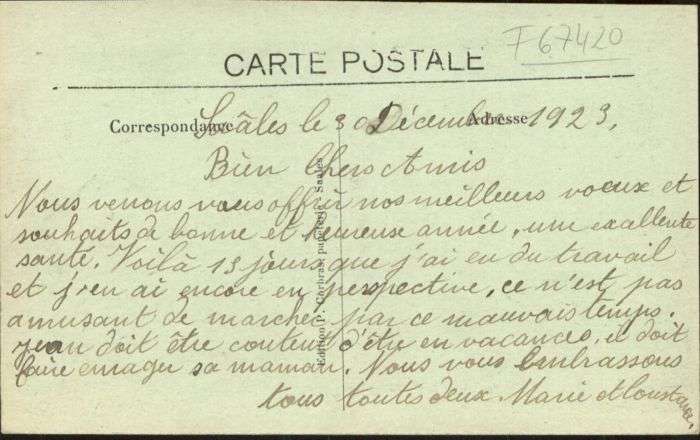 F 67420
CARTE POSTALE
Correspondance
Adresse
Saâles le 30 Décembre 1923,
Bien Chers Amis
Nous venons vous offrir nos meilleurs voeux et
souhaits de bonne et heureuse année, une exallente
santé. Voilà 15 jours que j'ai eu du travail
et j'en ai encore en perspective, ce n'est pas
amusant de marcher par ce mauvais temps.
Jean doit être content d'être en vacances, il doit
faire enrager sa maman. Nous vous embrassons
tous toutes deux Marie et
Edition P. papeterie, Saales